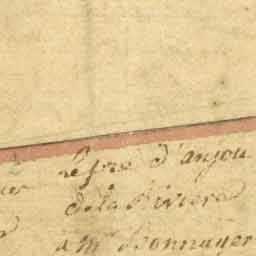 le pré d'anjou
de la Riviere
a Mr Bonnuyer